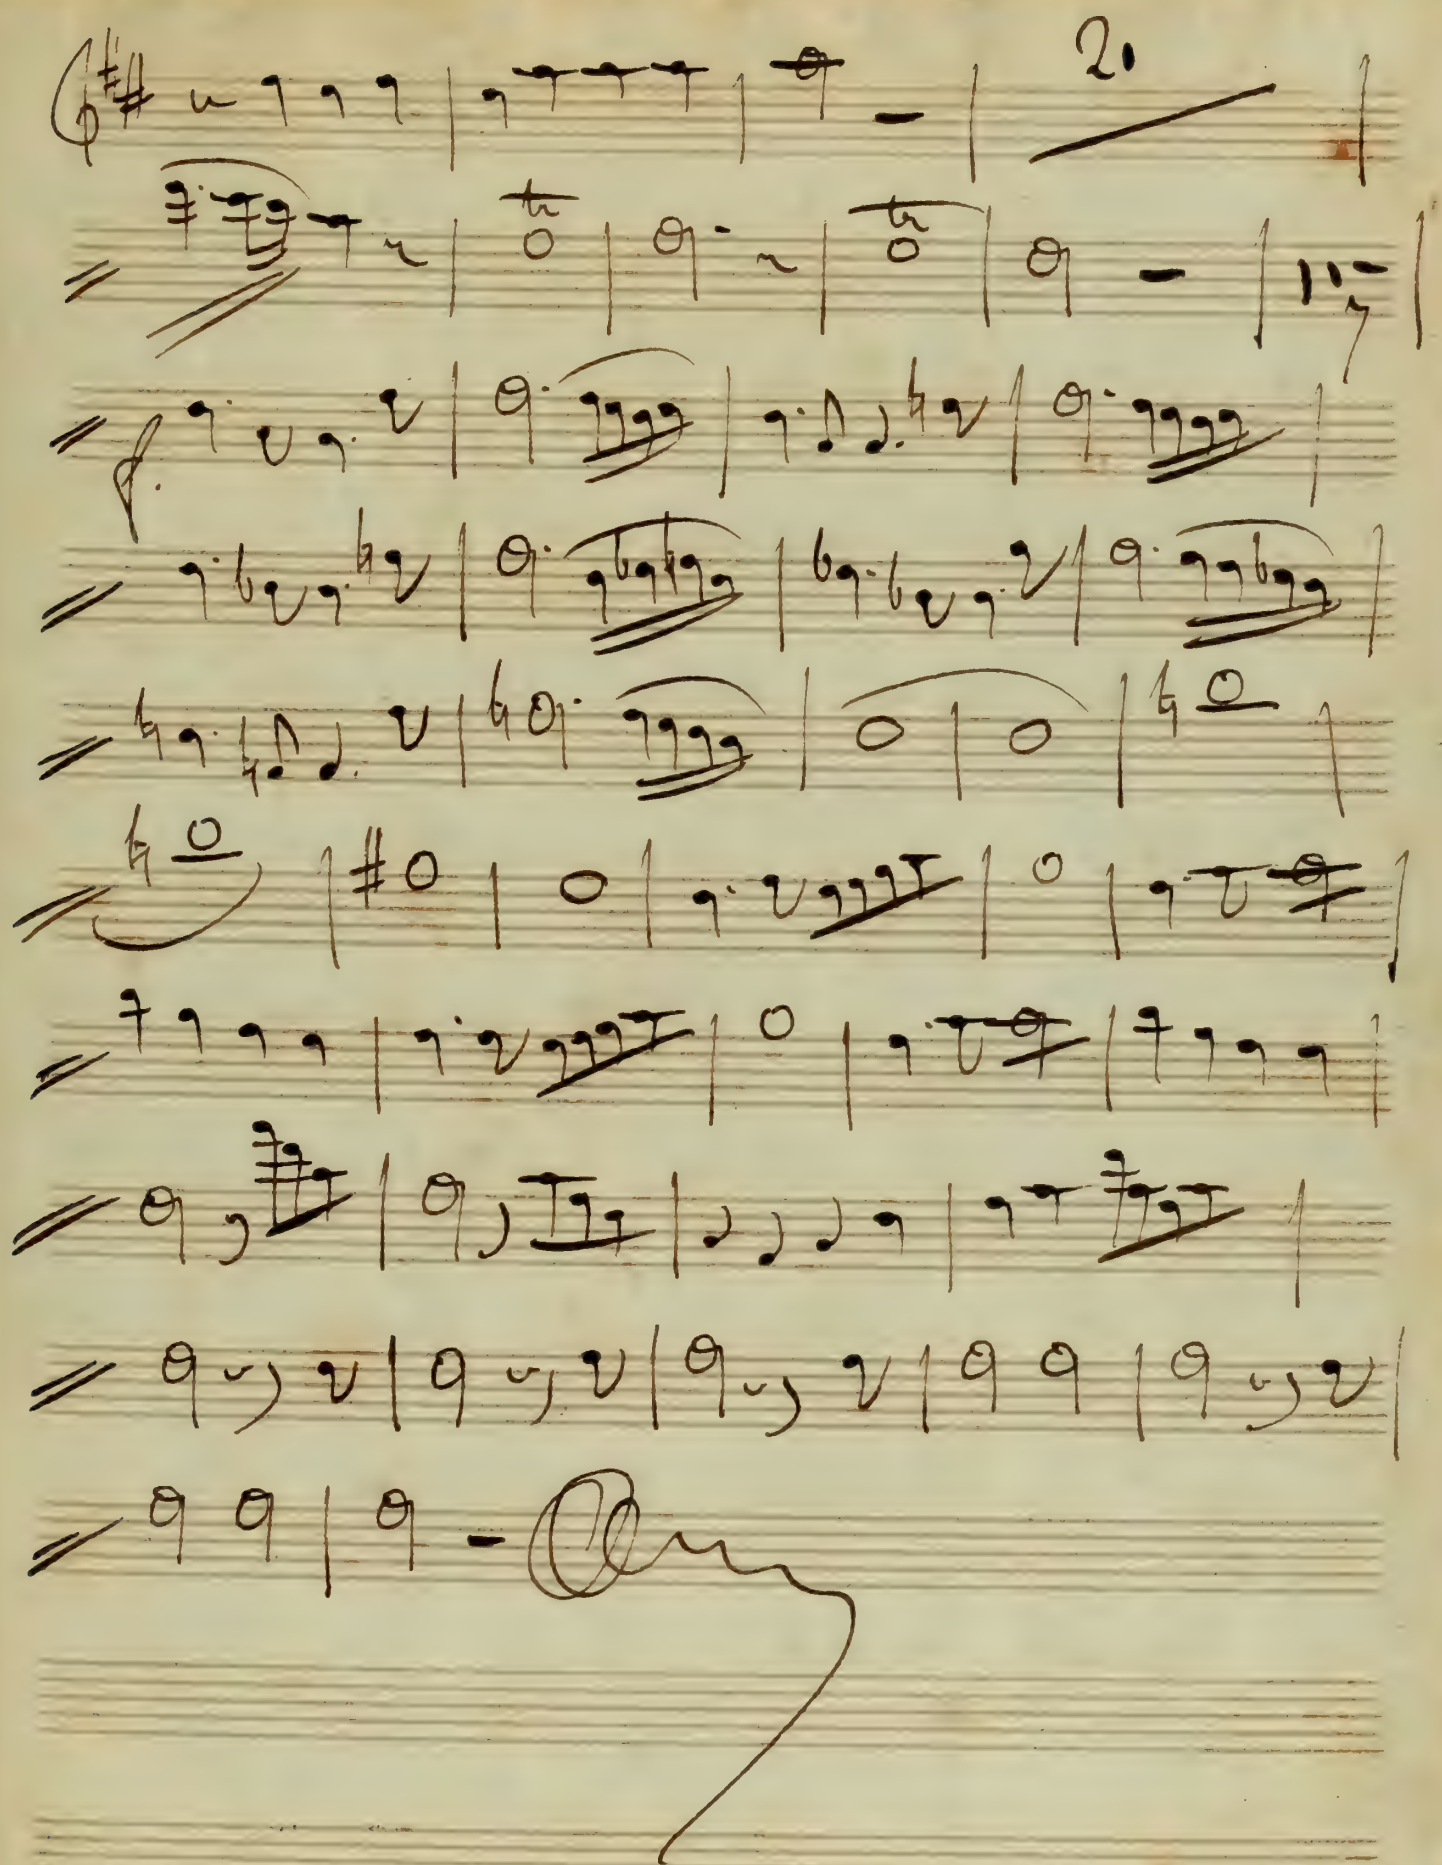 2.
tr tr
f.